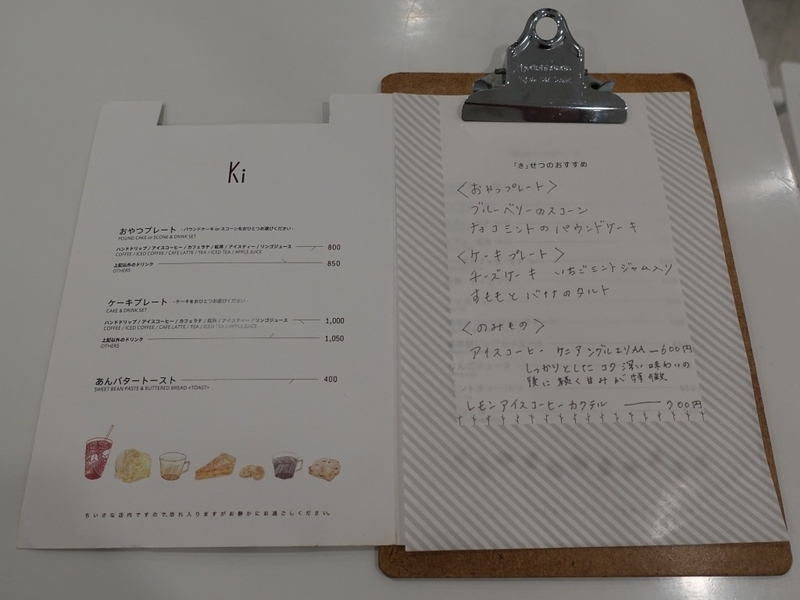 Ki
おやつプレート -パウンドケーキ or スコーンをおひとつお選びください-
POUND CAKE or SCONE & DRINK SET
ハンドドリップ / アイスコーヒー / カフェラテ / 紅茶 / アイスティー / リンゴジュース 800
COFFEE / ICED COFFEE / CAFE LATTE / TEA / ICED TEA / APPLE JUICE
上記以外のドリンク 850
OTHERS
ケーキプレート -ケーキをおひとつお選びください-
CAKE & DRINK SET
ハンドドリップ / アイスコーヒー / カフェラテ / 紅茶 / アイスティー / リンゴジュース 1,000
COFFEE / ICED COFFEE / CAFE LATTE / TEA / ICED TEA / APPLE JUICE
上記以外のドリンク 1,050
OTHERS
あんバタートースト 400
SWEET BEAN PASTE & BUTTERED BREAD <TOAST>
ちいさな店内ですので、恐れ入りますがお静かにお過ごしください。
「き」せつのおすすめ
<おやつプレート>
ブルーベリーのスコーン
チョコミントのパウンドケーキ
<ケーキプレート>
チーズケーキ いちごミントジャム入り
すももとバナナのタルト
<のみもの>
アイスコーヒー ケニアングルエリAA 600円
しっかりとしたコク深い味わいの
後に続く甘みが特徴
レモンアイスコーヒーカクテル 700円